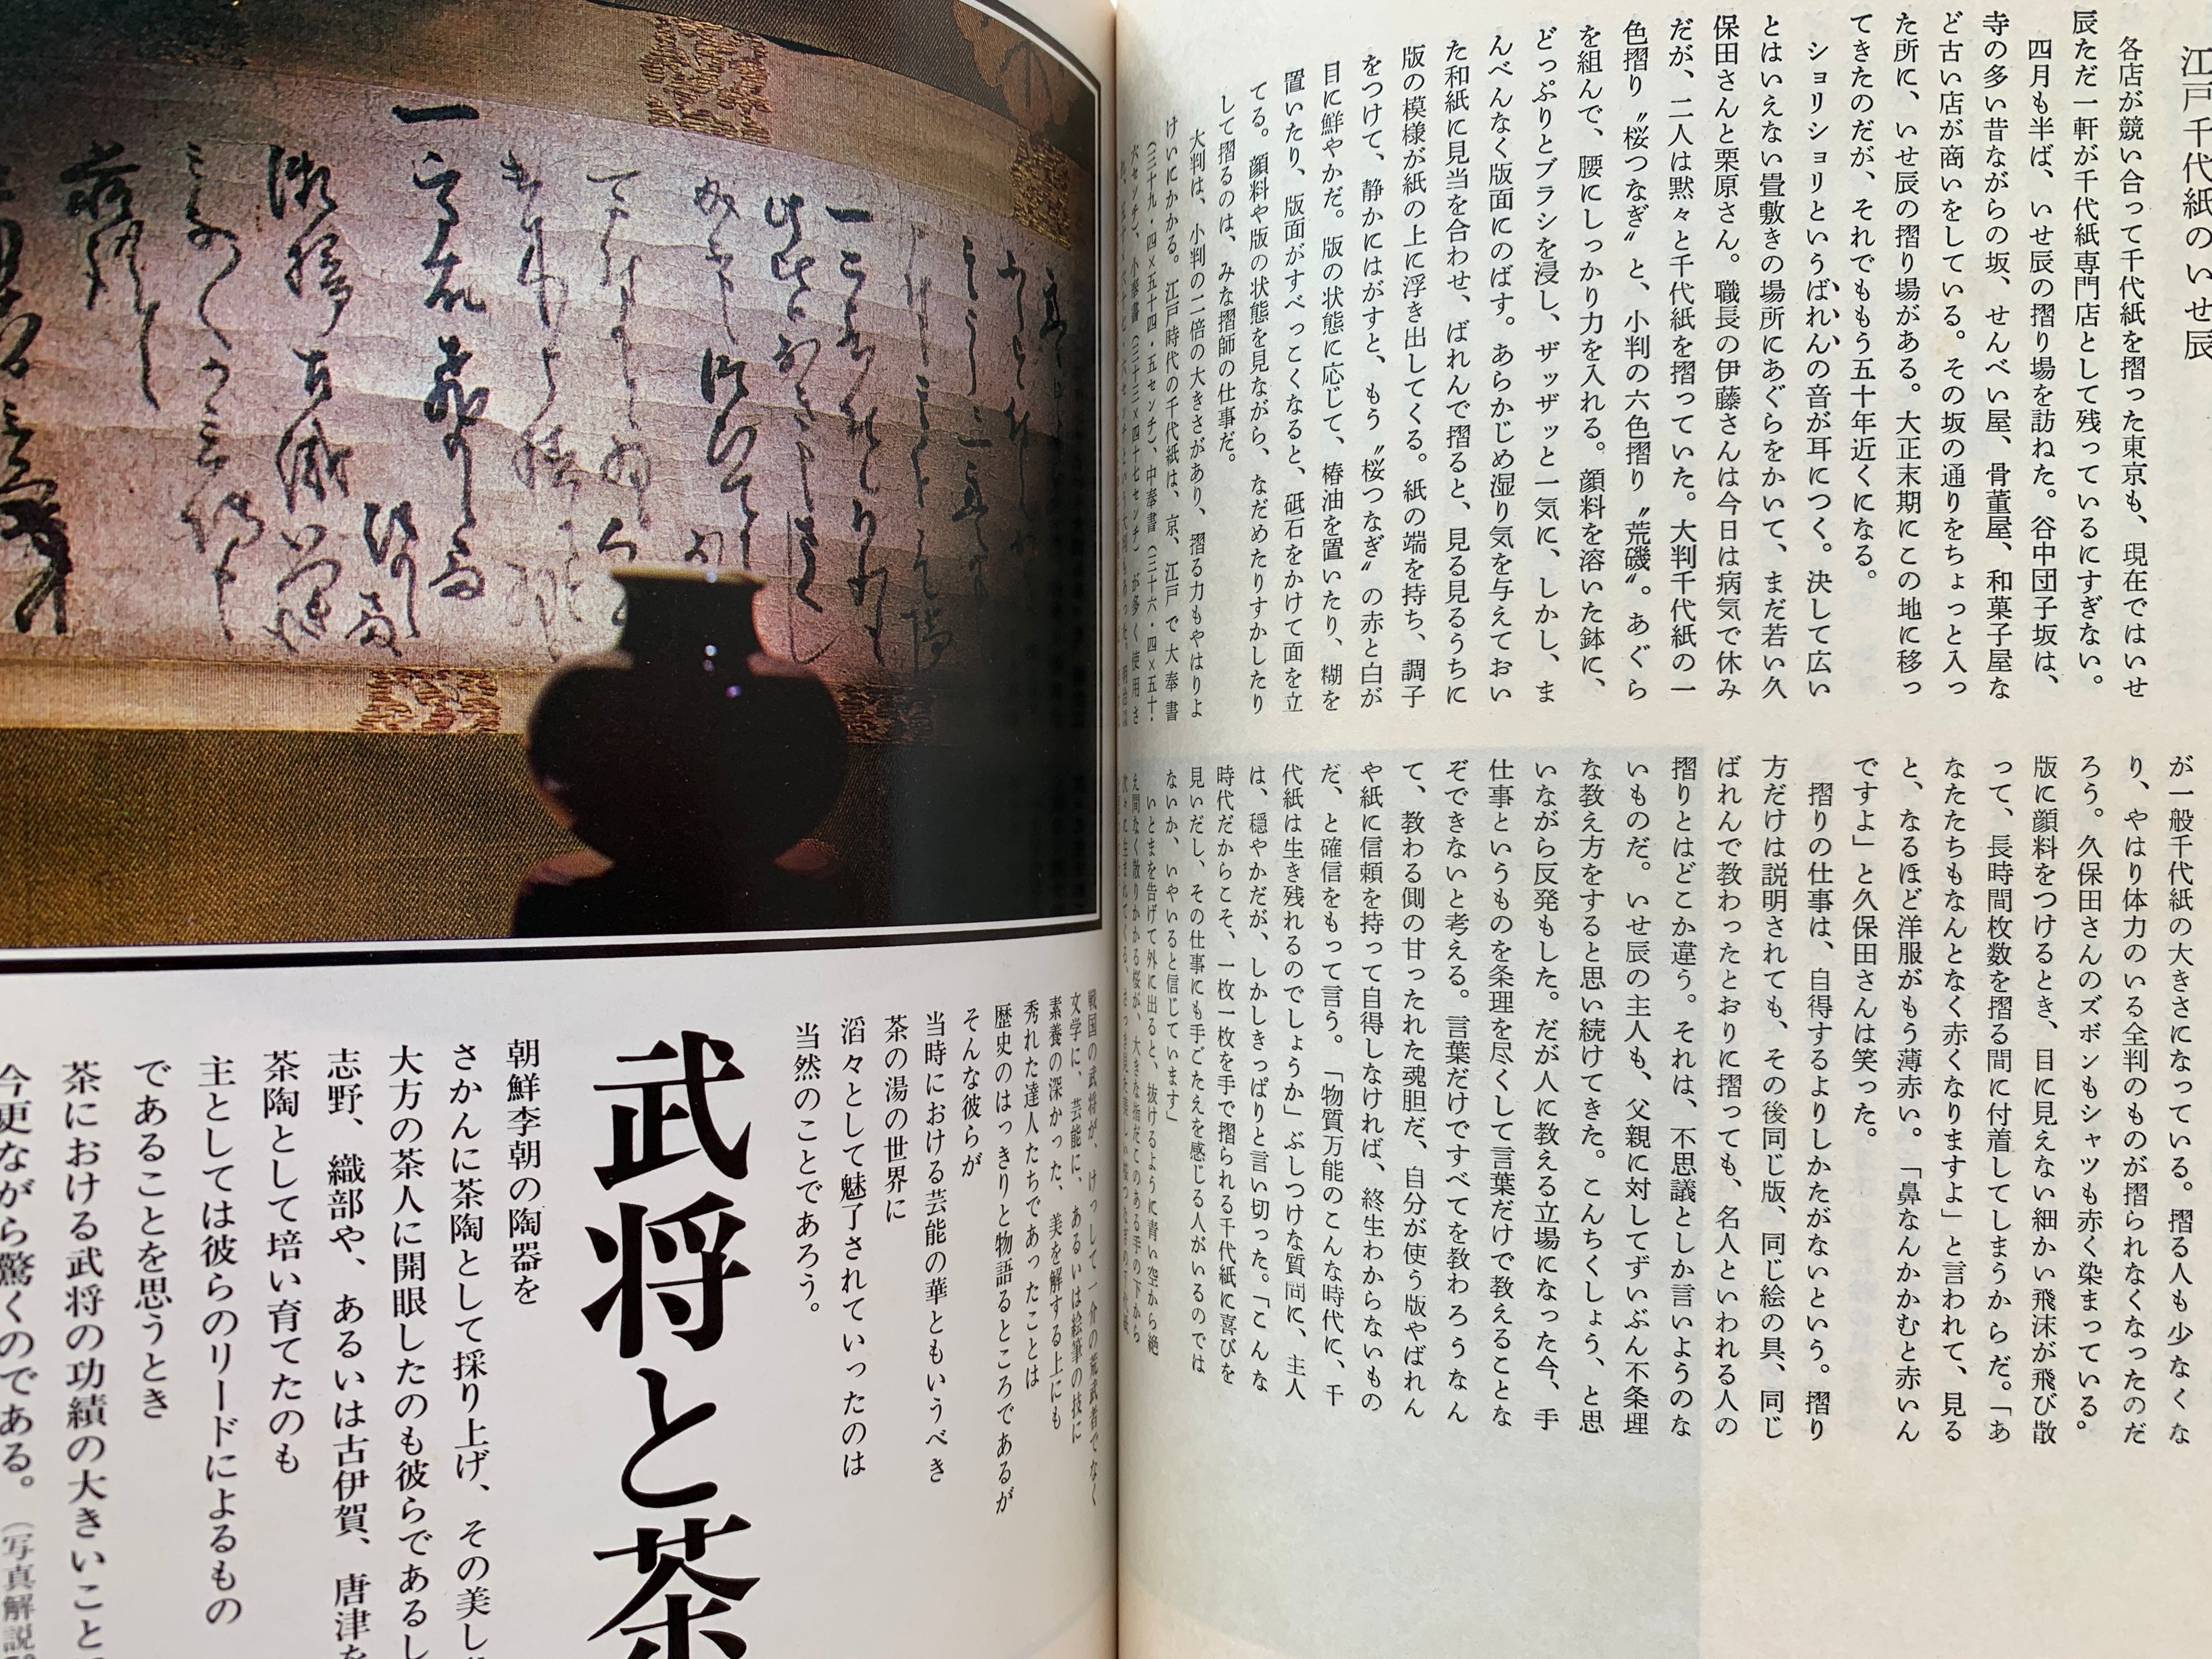 江戸千代紙のいせ辰
各店が競い合って千代紙を摺った東京も、現在ではいせ
辰ただ一軒が千代紙専門店として残っているにすぎない。
四月も半ば、いせ辰の摺り場を訪ねた。谷中団子坂は、
寺の多い昔ながらの坂、せんべい屋、骨董屋、和菓子屋な
ど古い店が商いをしている。その坂の通りをちょっと入っ
た所に、いせ辰の摺り場がある。大正末期にこの地に移っ
てきたのだが、それでももう五十年近くになる。
ショリショリというばれんの音が耳につく。決して広い
とはいえない畳敷きの場所にあぐらをかいて、まだ若い久
保田さんと栗原さん。職長の伊藤さんは今日は病気で休み
だが、二人は黙々と千代紙を摺っていた。大判千代紙の一
色摺り〝桜つなぎ〟と、小判の六色摺り〝荒磯〟。あぐら
を組んで、腰にしっかり力を入れる。顔料を溶いた鉢に、
どっぷりとブラシを浸し、ザッザッと一気に、しかし、ま
んべんなく版面にのばす。あらかじめ湿り気を与えておい
た和紙に見当を合わせ、ばれんで摺ると、見る見るうちに
版の模様が紙の上に浮き出してくる。紙の端を持ち、調子
をつけて、静かにはがすと、もう〝桜つなぎ〟の赤と白が
目に鮮やかだ。版の状態に応じて、椿油を置いたり、糊を
置いたり、版面がすべっこくなると、砥石をかけて面を立
てる。顔料や版の状態を見ながら、なだめたりすかしたり
して摺るのは、みな摺師の仕事だ。
大判は、小判の二倍の大きさがあり、摺る力もやはりよ
けいにかかる。江戸時代の千代紙は、京、江戸で大奉書
（三十九・四×五十四・五センチ）、中奉書（三十六・四×五十・
六センチ）、小奉書（三十三×四十七センチ）が多く使用さ
が一般千代紙の大きさになっている。摺る人も少なくな
り、やはり体力のいる全判のものが摺られなくなったのだ
ろう。久保田さんのズボンもシャツも赤く染まっている。
版に顔料をつけるとき、目に見えない細かい飛沫が飛び散
って、長時間枚数を摺る間に付着してしまうからだ。「あ
なたたちもなんとなく赤くなりますよ」と言われて、見る
と、なるほど洋服がもう薄赤い。「鼻なんかかむと赤いん
ですよ」と久保田さんは笑った。
摺りの仕事は、自得するよりしかたがないという。摺り
方だけは説明されても、その後同じ版、同じ絵の具、同じ
ばれんで教わったとおりに摺っても、名人といわれる人の
摺りとはどこか違う。それは、不思議としか言いようのな
いものだ。いせ辰の主人も、父親に対してずいぶん不条理
な教え方をすると思い続けてきた。こんちくしょう、と思
いながら反発もした。だが人に教える立場になった今、手
仕事というものを条理を尽くして言葉だけで教えることな
ぞできないと考える。言葉だけですべてを教わろうなん
て、教わる側の甘ったれた魂胆だ、自分が使う版やばれん
や紙に信頼を持って自得しなければ、終生わからないもの
だ、と確信をもって言う。「物質万能のこんな時代に、千
代紙は生き残れるのでしょうか」ぶしつけな質問に、主人
は、穏やかだが、しかしきっぱりと言い切った。「こんな
時代だからこそ、一枚一枚を手で摺られる千代紙に喜びを
見いだし、その仕事にも手ごたえを感じる人がいるのでは
ないか、いやいると信じています」
いとまを告げて外に出ると、抜けるように青い空から絶
え間なく散りかかる桜が、大きな指だこのある手の下から
戦国の武将が、けっして一介の荒武者でなく
文学に、芸能に、あるいは絵筆の技に
素養の深かった、美を解する上にも
秀れた達人たちであったことは
歴史のはっきりと物語るところであるが
そんな彼らが
当時における芸能の華ともいうべき
茶の湯の世界に
滔々として魅了されていったのは
当然のことであろう。
武将と茶
朝鮮李朝の陶器を
さかんに茶陶として採り上げ、その美し
大方の茶人に開眼したのも彼らであるし
志野、織部や、あるいは古伊賀、唐津を
茶陶として培い育てたのも
主としては彼らのリードによるもの
であることを思うとき
茶における武将の功績の大きいこと
今更ながら驚くのである。（写真解説